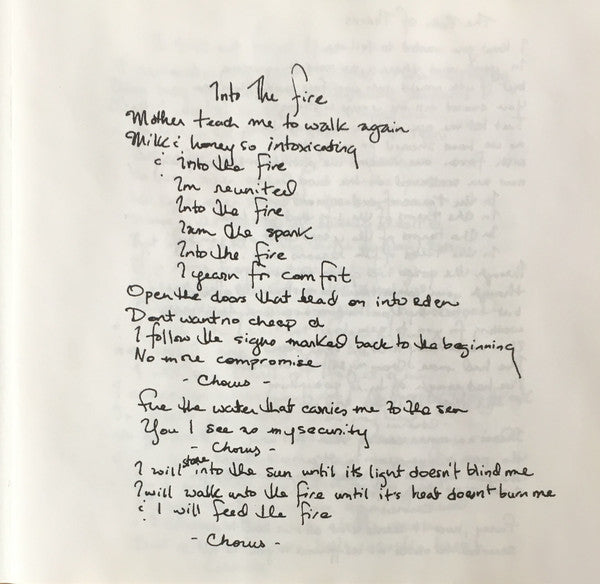 Into The Fire
Mother teach me to walk again
Milk & honey so intoxicating
& Into the fire
Im reunited
Into the fire
I am the spark
Into the fire
I yearn for comfort
Open the doors that lead on into eden
Dont want no cheap d
I follow the signs marked back to the beginning
No more compromise
- Chorus -
the water that carries me to the sea
You I see as my security
- Chorus -
I will stare into the sun until its light doesn't blind me
I will walk into the fire until it's heat doesn't burn me
& I will feed the fire
- Chorus -